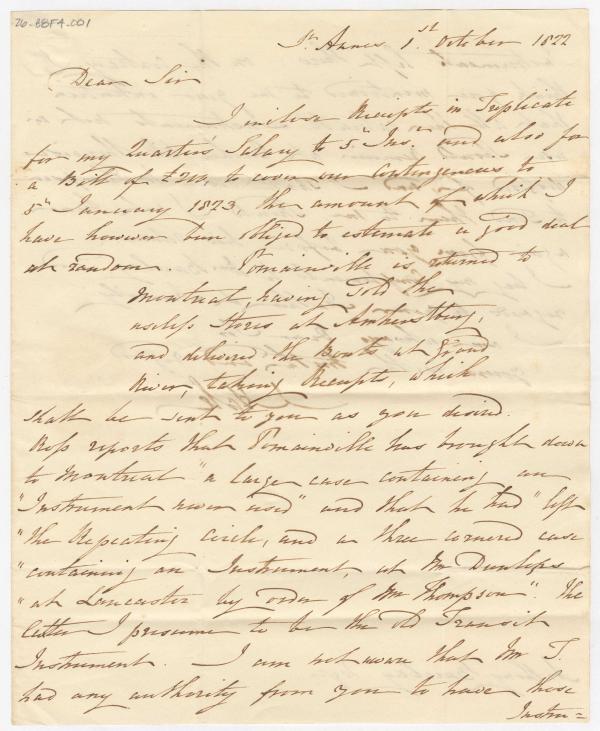 26-BBF4-001
St. Annes 1st October 1822
Dear Sir
I inclose Receipts in Triplicate
for my Quarter's Salary to 5th Inst. and also for
a Bill of £200, to cover our Contingencies to
5th January 1823, the amount of which I
have however been obliged to estimate a good deal
at random. Pomainville is returned to
Montreal, having Sold the
useless Stores at Amherstburg,
and delivered the Boats at Grand
River, taking Receipts, which
shall be sent to you as you desired.
Ross reports that Pomainville has brought down
to Montreal "a large case containing an
"Instrument never used" and that he had "left
"the Repeating Circle, and a three cornered case
"containing an Instrument, at Mr Dunlops
"at Lancaster by order of Mr Thompson". The
latter I presume to be the old Transit
Instrument. I am not aware that Mr T.
had any authority from you to have those
Instru=